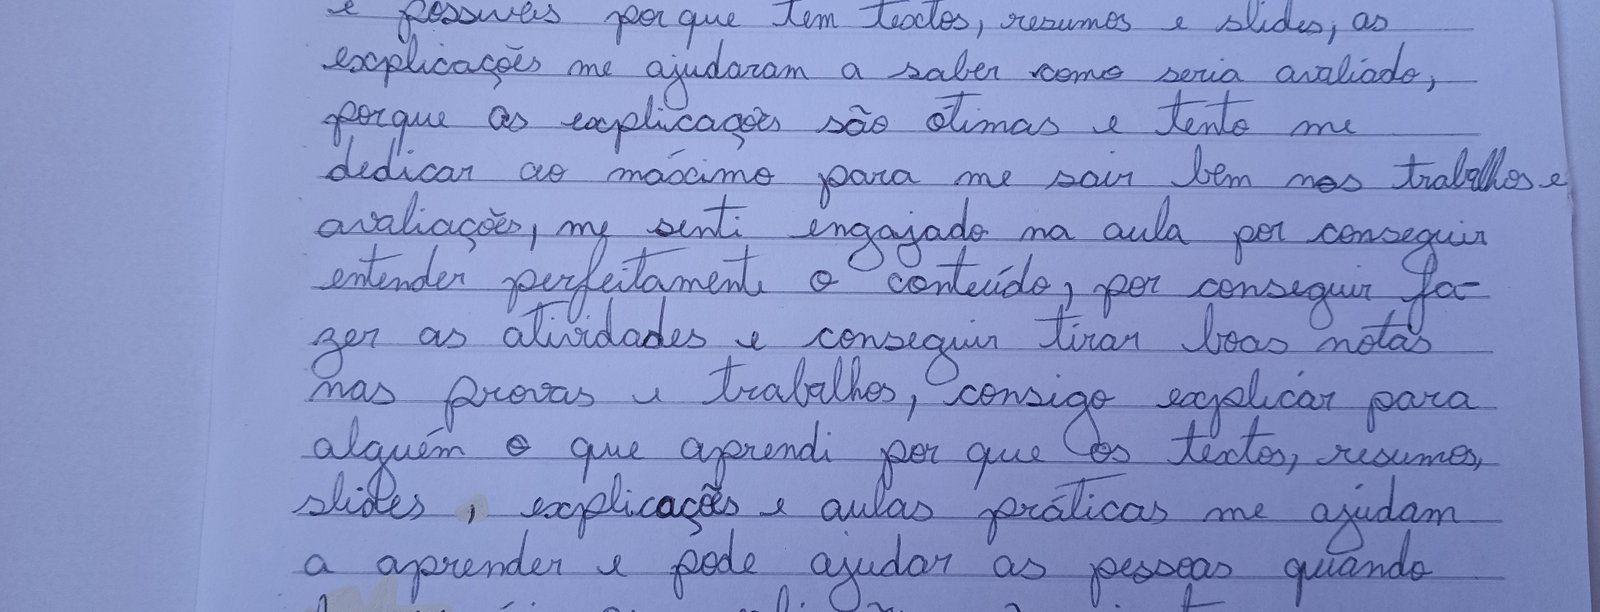 e possiveis por que tem textos, resumos e slides, as
explicações me ajudaram a saber como seria avaliado,
porque as explicações são ótimas e tento me
dedicar ao máximo para me sair bem nos trabalhos e
avaliações, me senti engajado na aula por conseguir
entender perfeitamente o conteúdo, por conseguir fa-
zer as atividades e conseguir tirar boas notas
nas provas e trabalhos, consigo explicar para
alguém o que aprendi por que os textos, resumos,
slides, explicações e aulas práticas me ajudam
a aprender e pode ajudar as pessoas quando